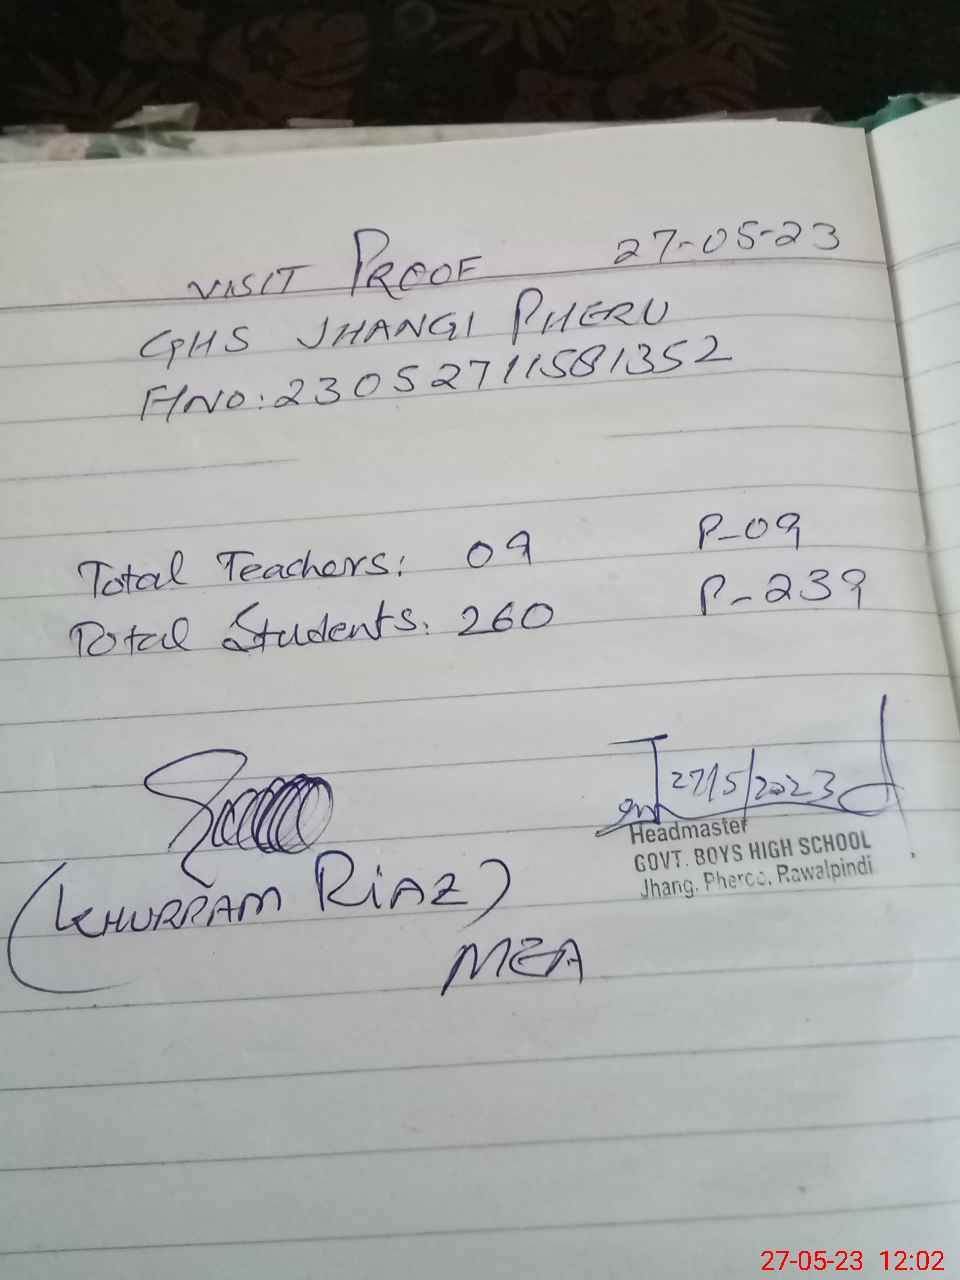 VISIT PROOF 27-05-23
GHS JHANGI PHERU
F/NO: 23052711581352
Total Teachers: 09 P-09
Total Students: 260 P-239
27/5/2023
Headmaster
GOVT. BOYS HIGH SCHOOL
Jhang. Pheroo, Rawalpindi
(KHURRAM RIAZ)
MEA
27-05-23 12:02